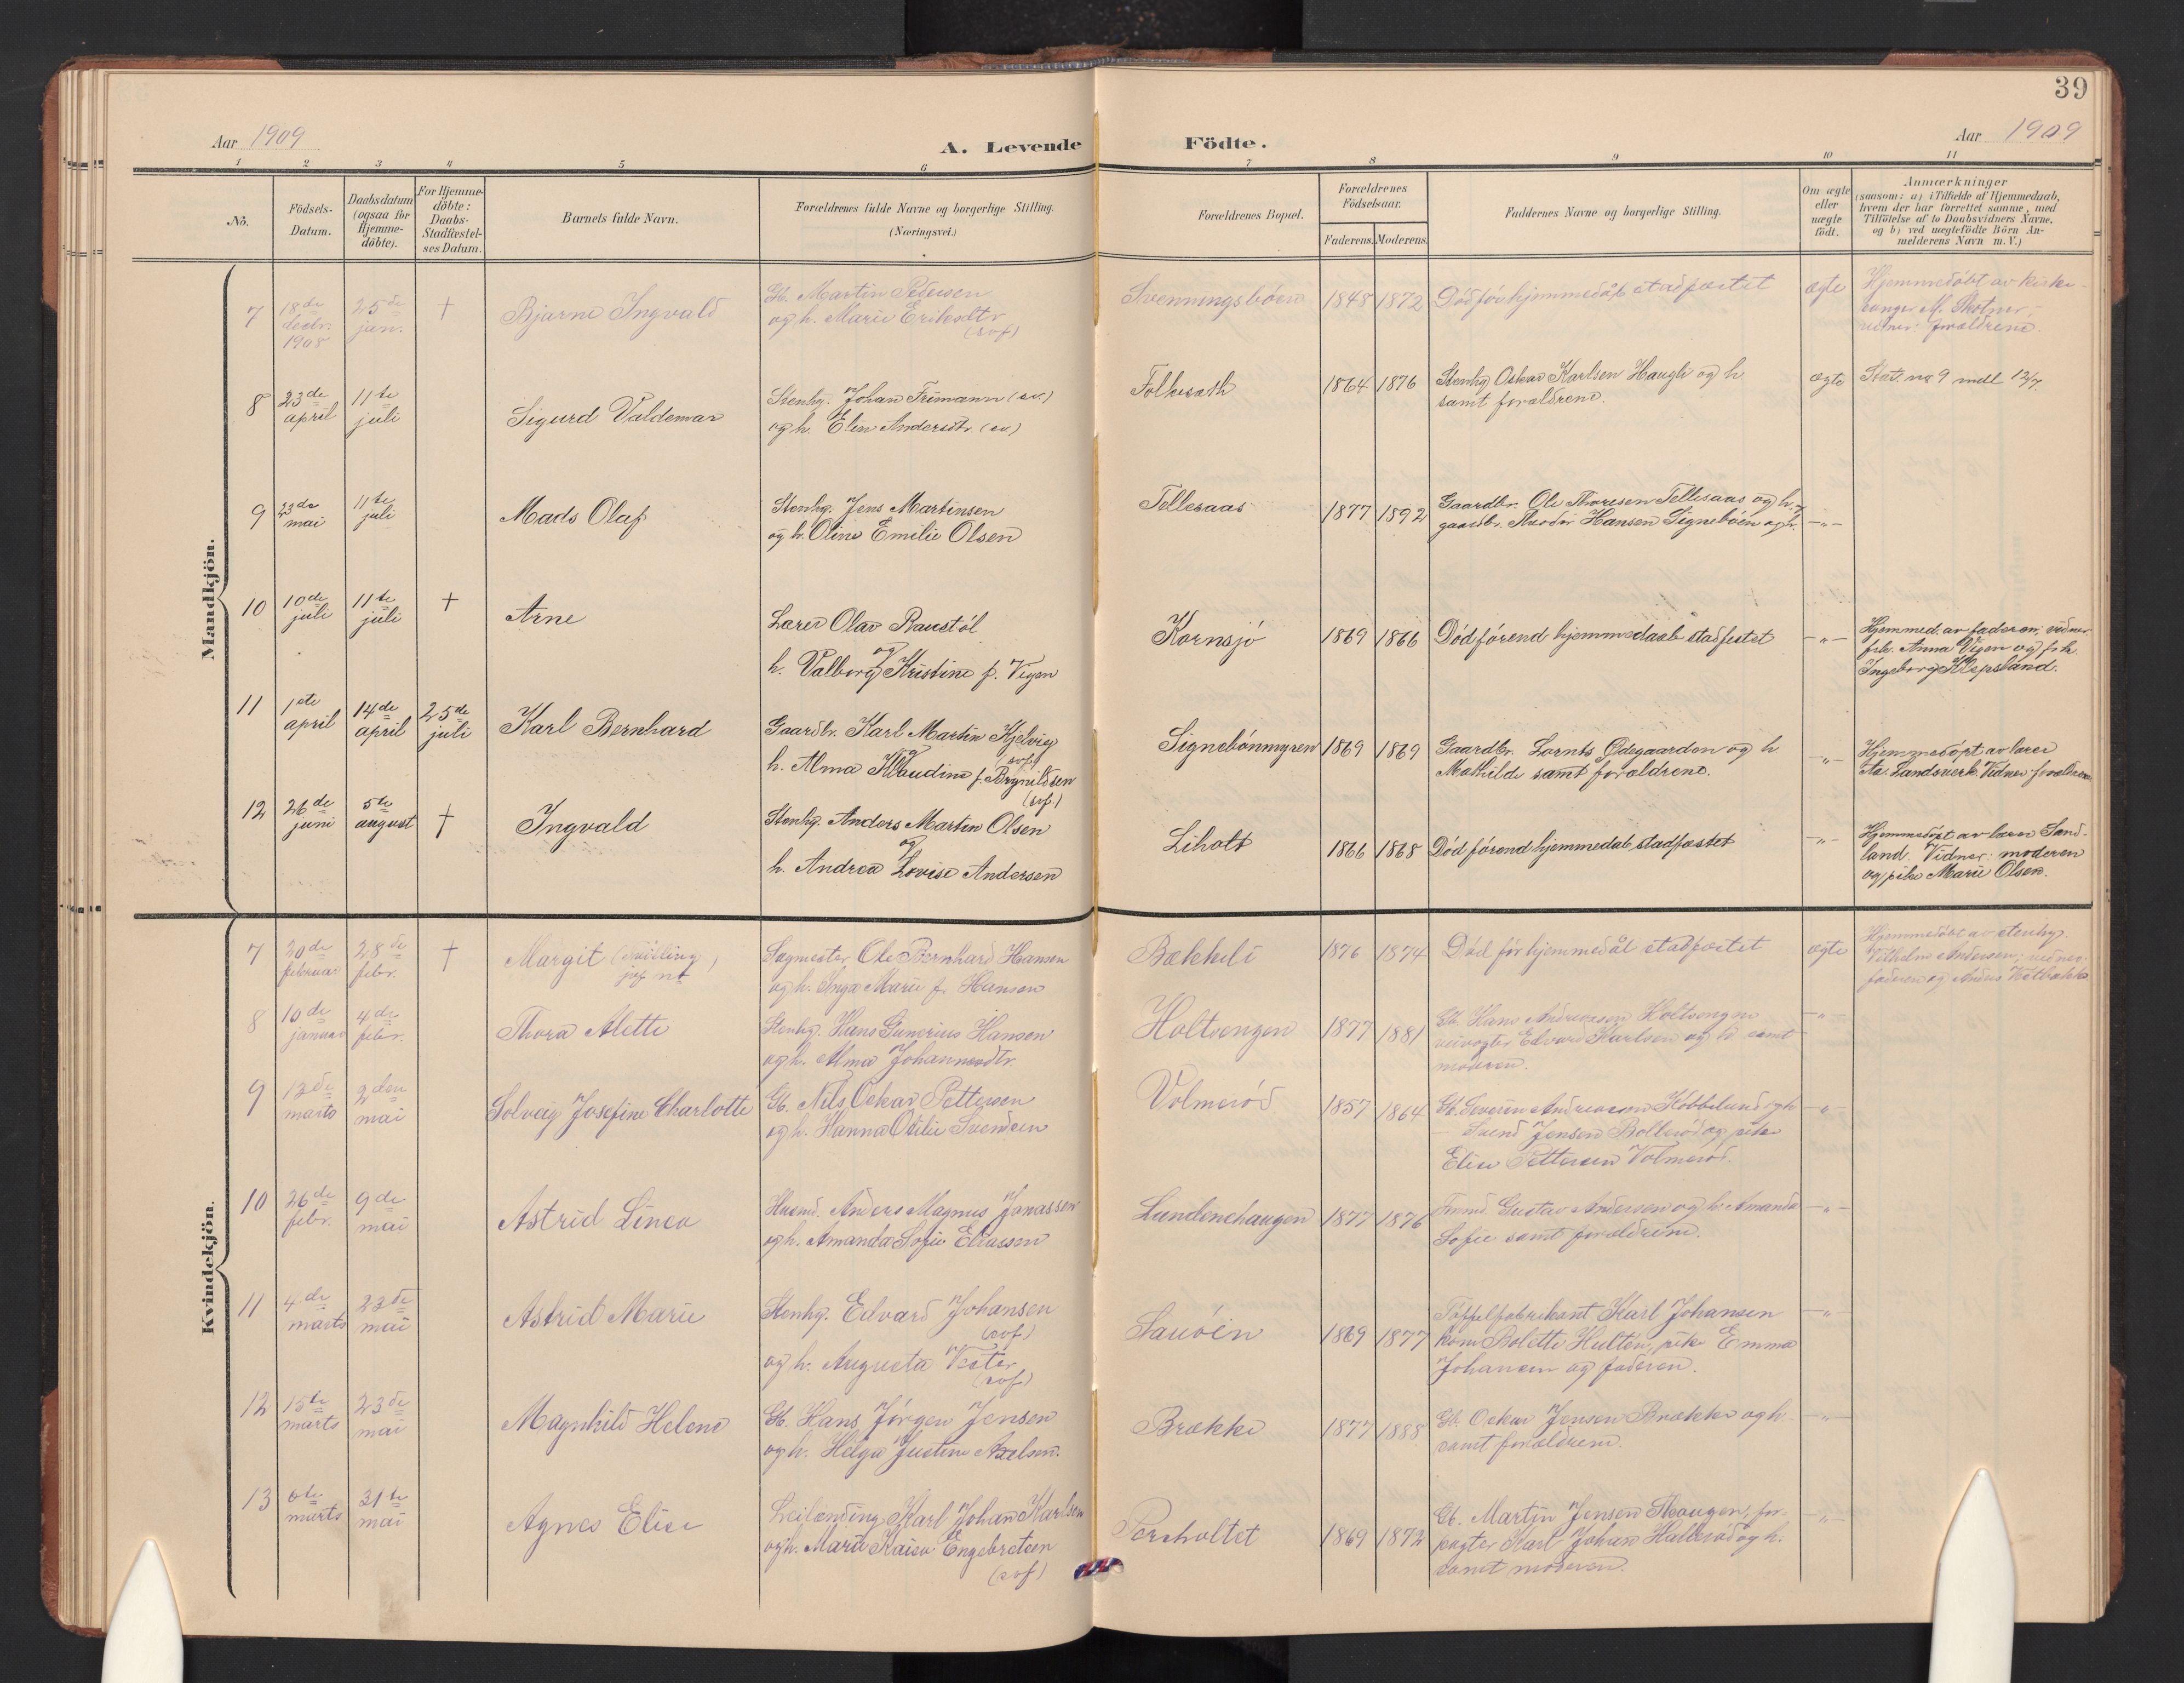 39
Aar 1909
A. Levende
Födte.
Aar 1909
1 2 3 4 5 6 7 8 9 10 11
No.
Födsels-
Datum.
Daabsdatum
(ogsaa for
Hjemme-
döbte).
For Hjemme-
döbte:
Daabs-
Stadfæstel-
ses Datum.
Barnets fulde Navn.
Forældrenes fulde Navne og borgerlige Stilling.
(Næringsvei.)
Forældrenes Bopæl.
Forældrenes
Födselsaar.
Faderens.
Moderens.
Faddernes Navne og borgerlige Stilling.
Om ægte
eller
uægte
födt.
Anmærkninger
(saasom: a) i Tilfælde af Hjemmedaab,
hvem der har forrettet samme, med
Tilföielse af to Daabsvidners Navne,
og b) ved uægtefödte Börn An-
melderens Navn m. V.)
Mandkjön.
7
18de
decbr.
1908
25de
jan.
+
Bjarne Ingvald
Gb. Martin Pedersen
og h. Marie Eriksdtr
(svf)
Svenningsböen
1848
1872
Död för hjemmedåb stadfæstet
ægte
Hjemmedöbt av kirke-
sanger M.
vidner: forældrene.
8
23de
april
11te
juli
Sigurd Valdemar
Stenhg. Johan Frimann (sv.)
og h. Elin Andersdtr. (sv.)
1864
1876
Stenhg Oskar Karlsen Haugh og h
samt forældrene.
ægte
Stat. no 9 mdl 12/7.
9
23de
mai
11te
juli
Mads Olaf
Stenhg. Jens Martinsen
og h. Oline Emilie Olsen
Tellesaas
1877
1892
Gaardbr. Ole Thoresen Tellesaas og h. og
gaardbr. Theodor Hansen Signeböen og h.
—"—
10
10de
juli
11te
juli
+
Arne
Lærer Olav Raustöl
og
h. Valborg Kristine f. Vigen
Kornsjö
1869
1866
Död förend hjemmedaab stadfestet
—"—
Hjemmed. av faderen; vidner
frk. Anna Vigen og frk.
Ingeborg Klepsland.
11
1ste
april
14de
april
25de
juli
Karl Bernhard
Gaardbr. Karl Martin Kjelvig
og (svf)
h. Alma Klaudine f. Brynildsen
(svf.)
Signebönmyren
1869
1869
Gaardbr. Lornts Ødegaarden og h
Mathilde samt forældrene.
—"—
Hjemmedöpt av lærer
Aa. Landsverk. Vidner: forældrene
12
26de
juni
5te
august
+
Ingvald
Stenhg. Anders Martin Olsen
og
h. Andrea Lovise Andersen
Liholt
1866
1868
Död förend hjemmedåb stadfæstet
—"—
Hjemmedöpt av lærer Sand-
land. Vidner: moderen
og pike Marie Olsen.
Kvindekjön.
7
20de
februar
28de
febr.
+
Margit (tvilling)
Sagmester Ole Bernhard Hansen
og h. Inga Marie f. Hansen
Bækkeli
1876
1874
Död för hjemmedåb stadfæstet
ægte
Hjemmedöbt av stenhg.
Vilhelm Andersen; vidner:
faderen og Anders
8
10de
januar
4de
febr.
Thora Alette
Stenhg. Hans Gunerius Hansen
og h. Alma Johannesdtr.
Holtvengen
1877
1881
Gb. Hans Andreassen Holtvengen
veivogter Edvard Karlsen og h samt
moderen.
—"—
9
13de
marts
2den
mai
Solveig Josefine Charlotte
Gb. Nils Oskar Pettersen
og h. Hanna Otilie Svendsen
Volmeröd
1857
1864
Gb. Severin Andreassen Kobbelund og h
Svend Jensen Bolleröd og pike
Elise Pettersen Volmeröd.
—"—
10
26de
febr.
9de
mai
Astrid Linea
Husmd. Anders Magnus Jonassen
og h. Amanda Sofie Eliassen
Lundenehaugen
1877
1876
Gustav Andersen og h. Amanda
Sofie samt forældrene.
—"—
11
4de
marts
23de
mai
Astrid Marie
Stenhg. Edvard Johansen
(svf)
og h. Augusta Vester
(svf)
Sauöen
1869
1877
Töffelfabrikant Karl Johansen
kone Bolette Hulten, pike Emma
Johansen og faderen.
—"—
12
15te
marts
23de
mai
Magnhild Helene
Gb. Hans Jörgen Jensen
og h. Helga Justine Axelsen.
Brække
1877
1888
Gb. Oskar Jensen Brække og h.
samt forældrene.
—"—
13
6te
marts
31te
mai
Agnes Elise
Leilænding Karl Johan Karlsen
og h. Marie Kaisa Engebretsen
(svf)
Porsholtet
1869
1872
Gb. Martin Jensen Skaugen, for-
pagter Karl Johan Halleröd og h.
samt moderen.
—"—